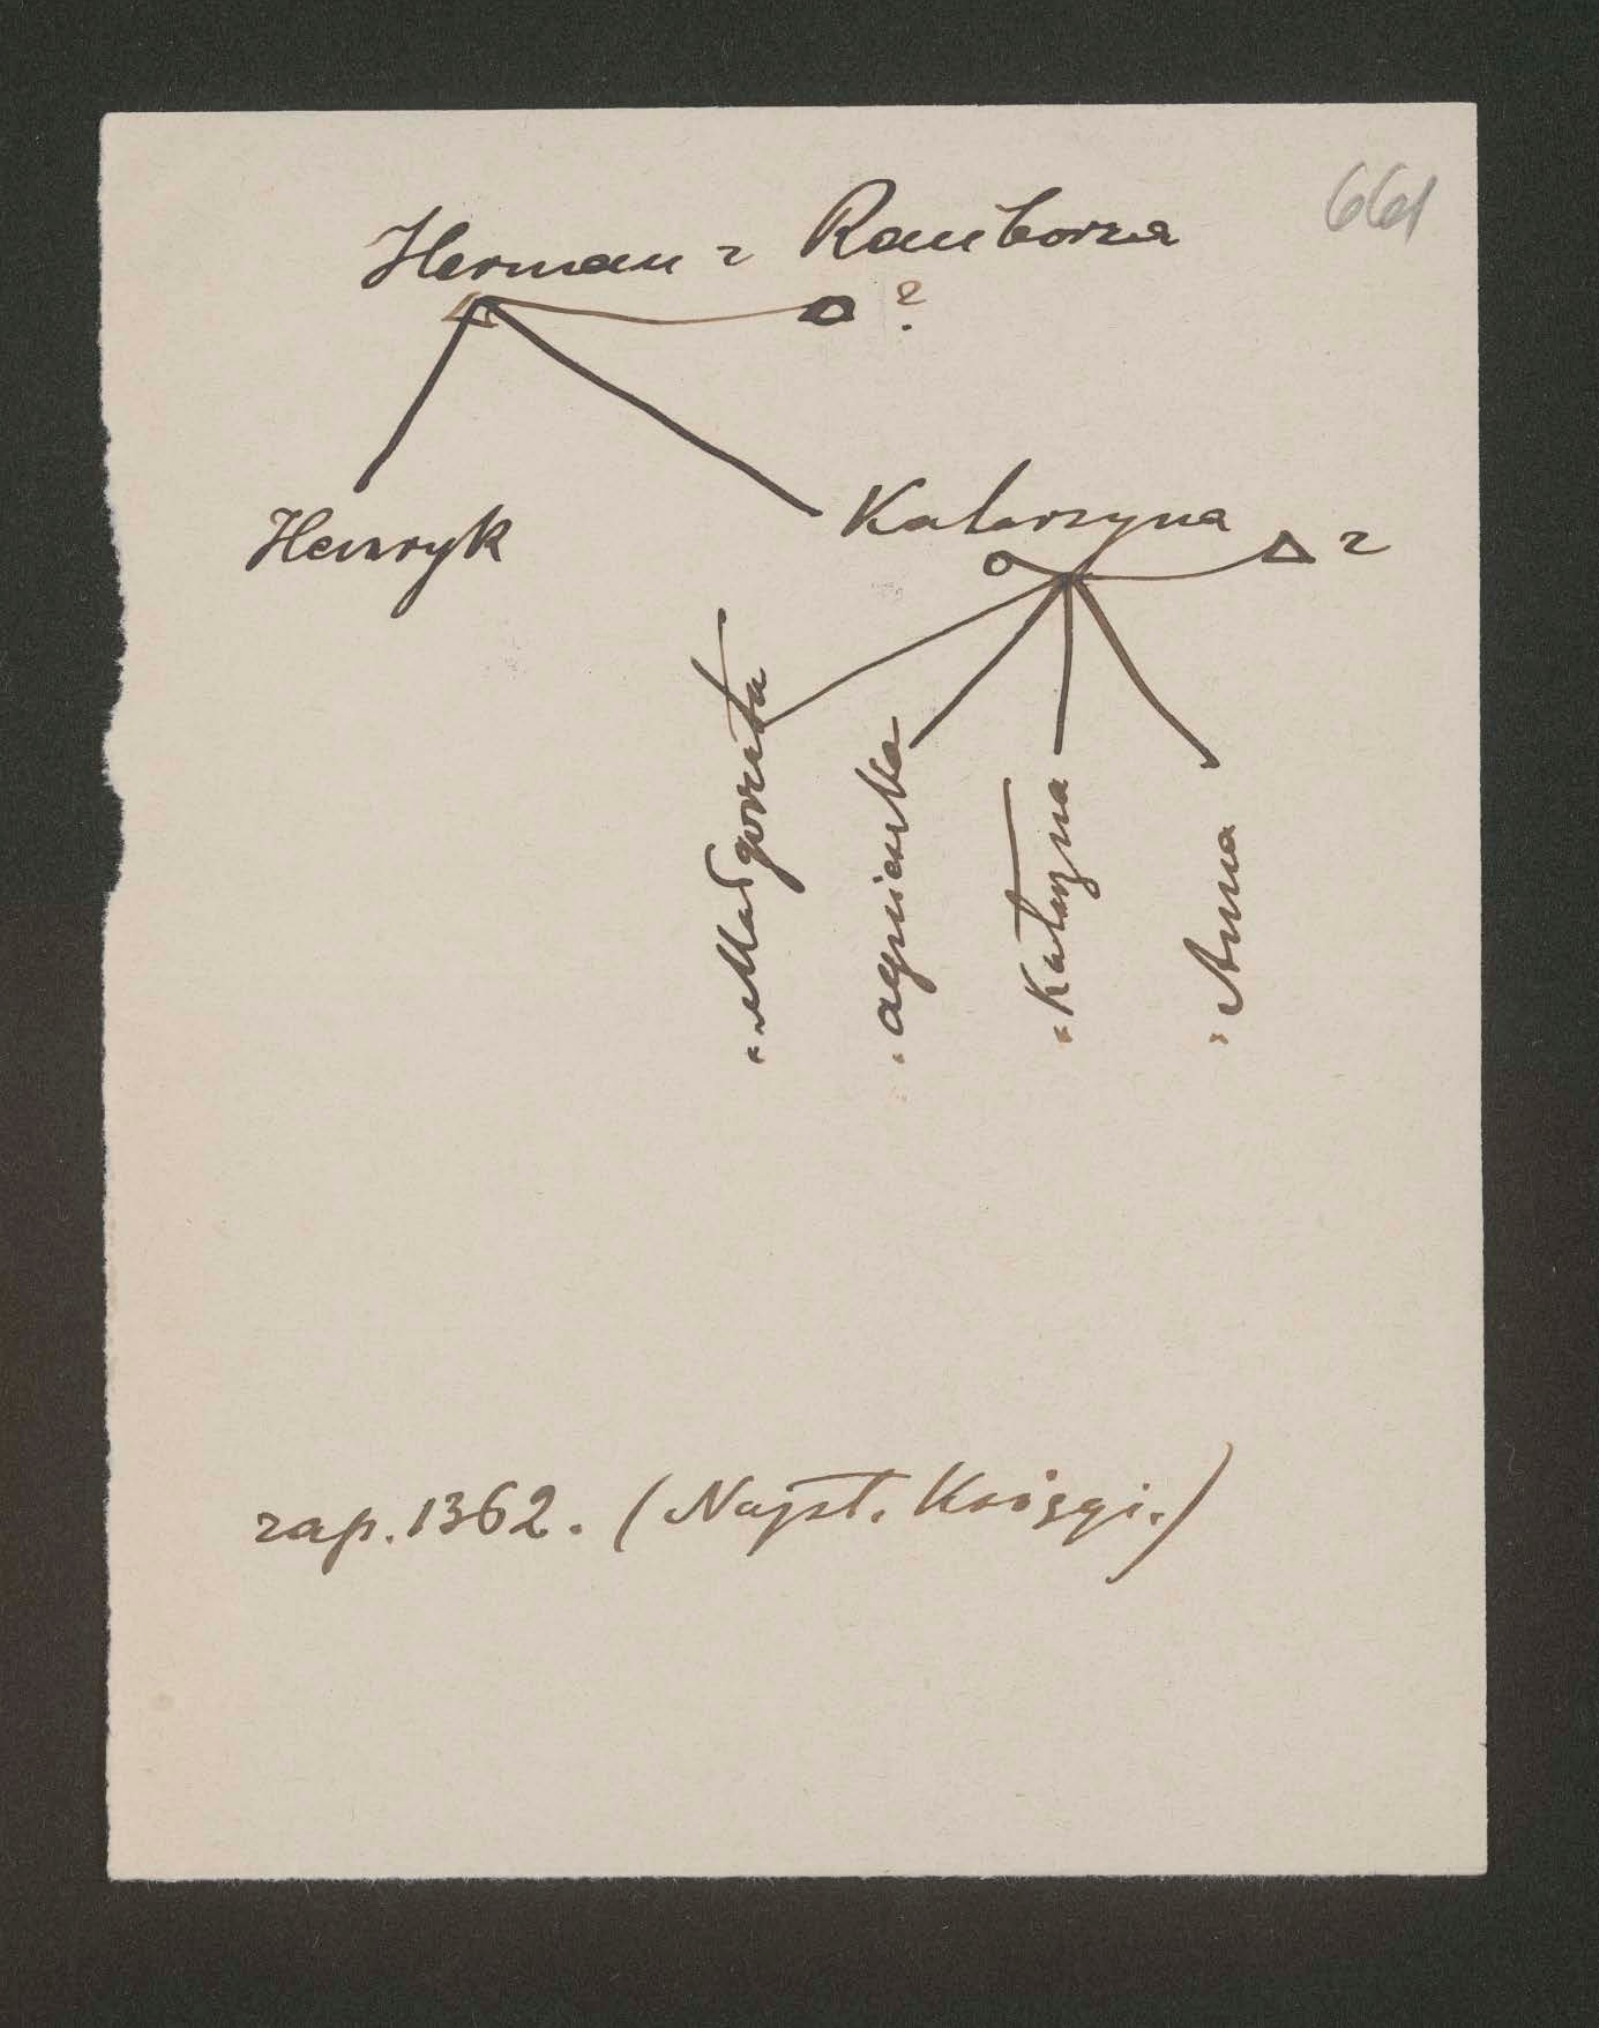 661
Herman z Raciborza
?
Henryk
Katarzyna
?
Małgorzata
Agnieszka
Katarzyna
Anna
zap. 1362. (Najst. Księgi.)